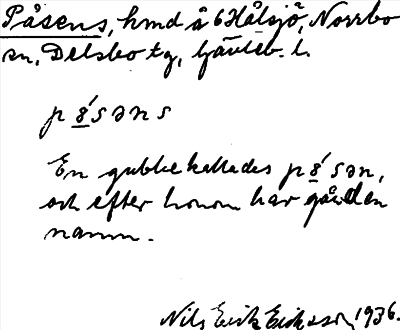 Påsens, hmd å 6 Hålsjö, Norrbo
sn, Delsbo tg, Gävleb. l.
pǻsəns
En gubbe kallades pǻsən,
och efter honom har gården
namn.
Nils Erik Eriksson 1936.